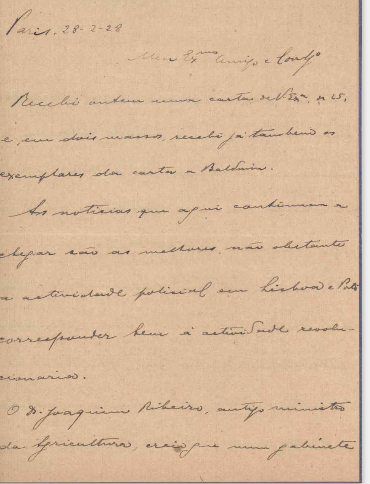 Paris, 28-2-28
Meu Exmo Amigo e Colgª
Recebi ontem uma carta de V. Exª, a 25,
e, em dois massos, recebi já tambem os
exemplares da carta a Balduin.
As noticias que aqui continuam a
chegar são as melhores, não obstante
a actividade policial em Lisboa e Porto
corresponder bem á actividade revolu-
cionaria.
O Dr. Joaquim Ribeiro, antigo ministro
da Agricultura, creio que num gabinete